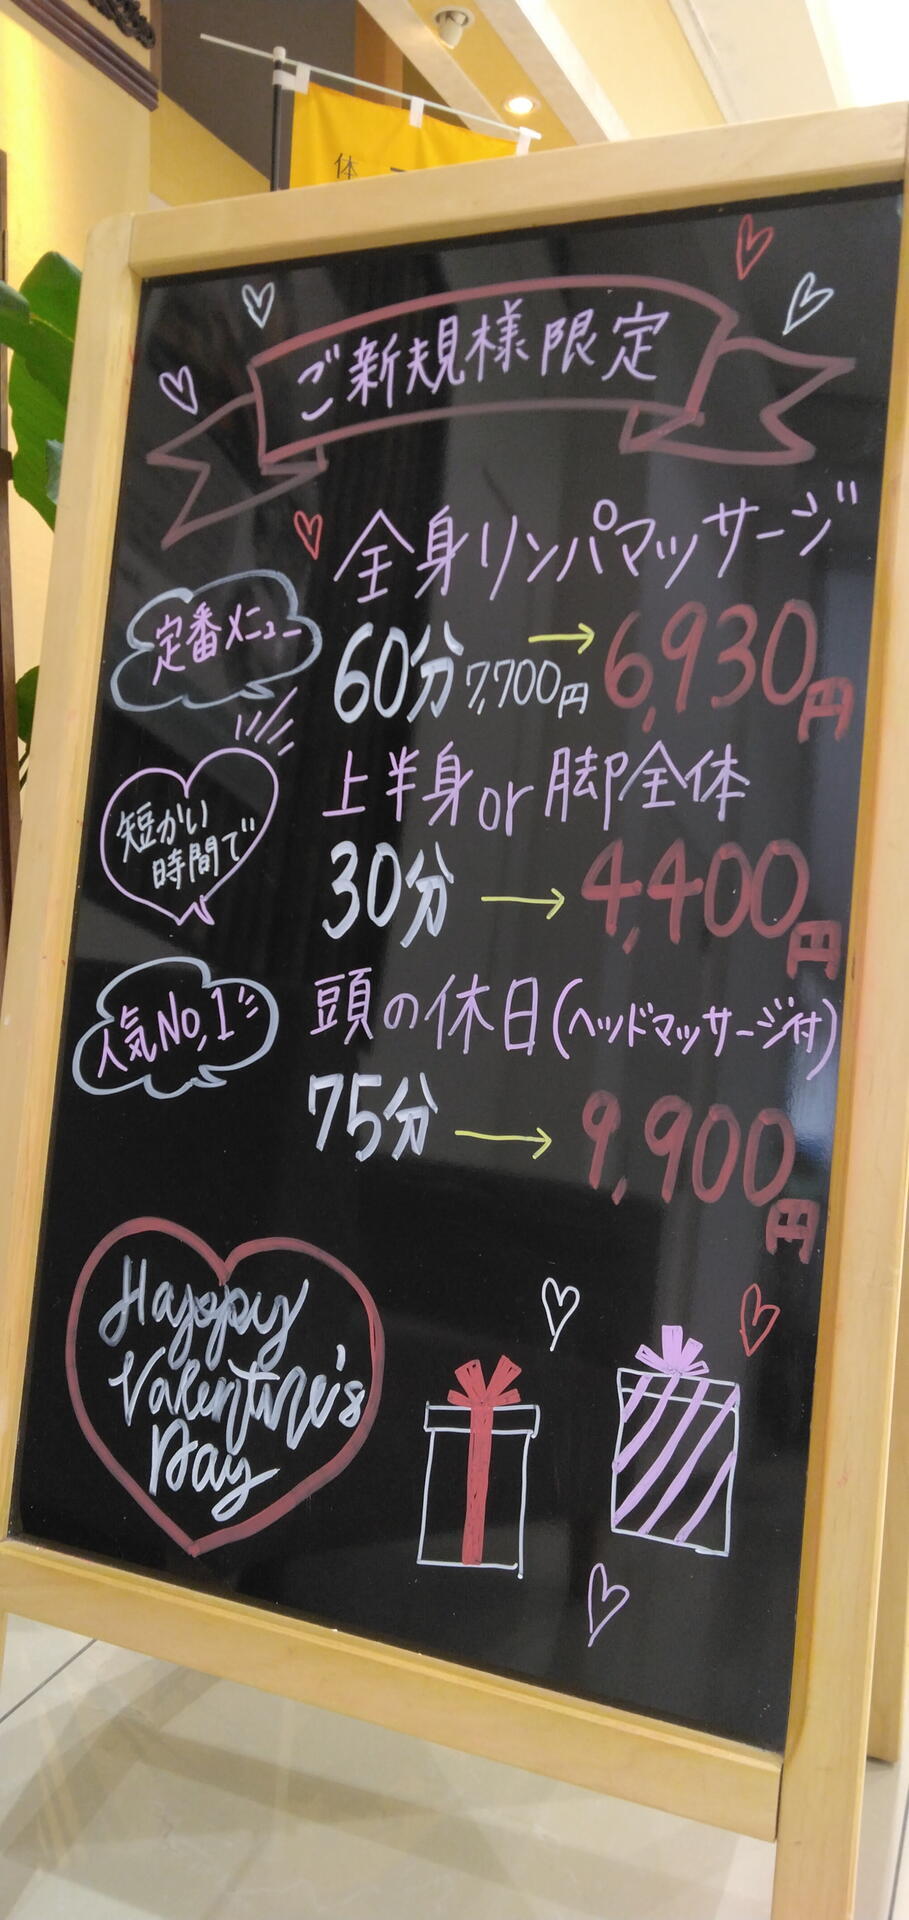 体
ご新規様限定
全身リンパマッサージ
定番メニュー
60分 7,700円 → 6,930円
上半身or脚全体
短かい
時間で
30分 → 4,400円
人気No,1
頭の休日(ヘッドマッサージ付)
75分 → 9,900円
Happy
Valentine's
Day